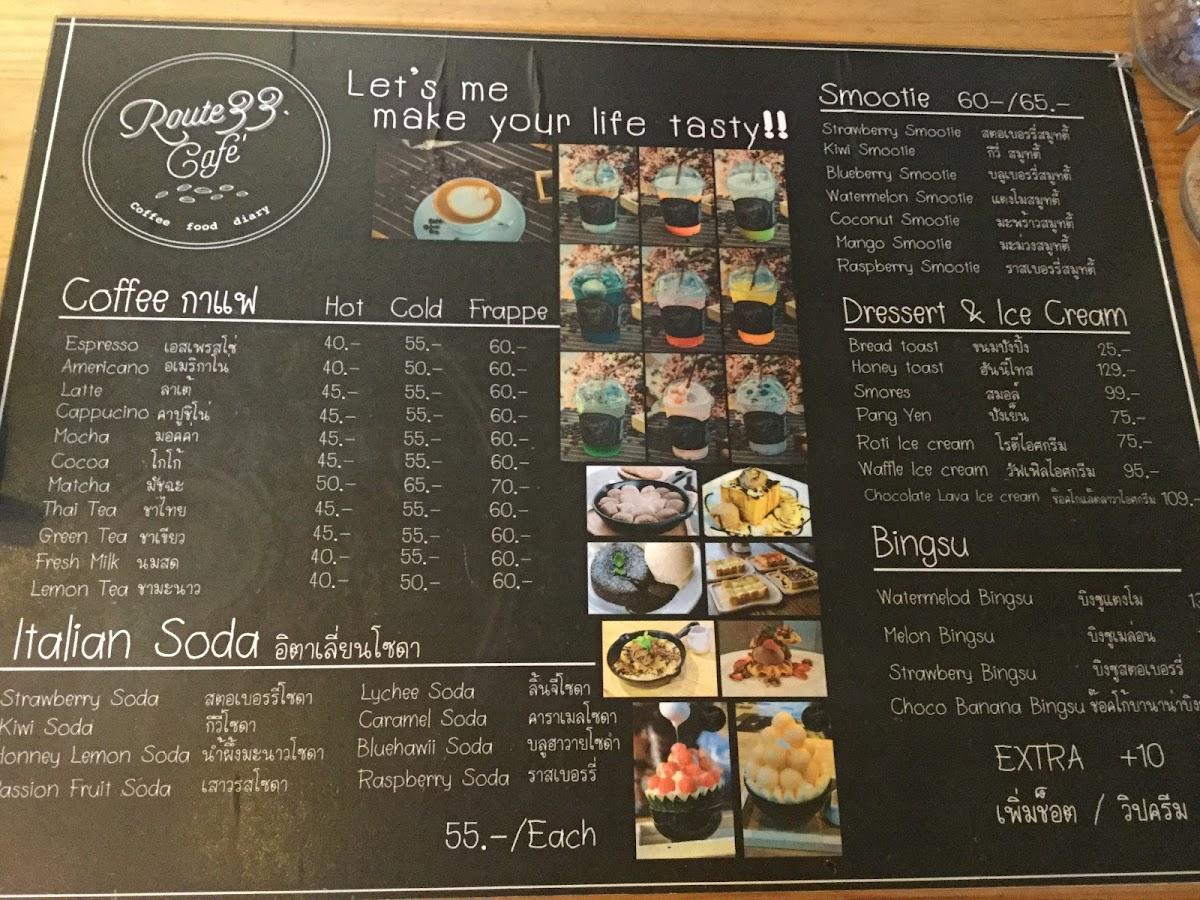 Route 33.
Café
Coffee food diary
Let's me
make your life tasty!!
Coffee กาแฟ Hot Cold Frappe
Espresso เอสเพรสโซ่ 40.- 55.- 60.-
Americano อเมริกาโน 40.- 50.- 60.-
Latte ลาเต้ 45.- 55.- 60.-
Cappucino คาปูชิโน่ 45.- 55.- 60.-
Mocha มอคค่า 45.- 55.- 60.-
Cocoa โกโก้ 45.- 55.- 60.-
Matcha มัชฉะ 50.- 65.- 70.-
Thai Tea ชาไทย 45.- 55.- 60.-
Green Tea ชาเขียว 45.- 55.- 60.-
Fresh Milk นมสด 40.- 55.- 60.-
Lemon Tea ชามะนาว 40.- 50.- 60.-
Italian Soda อิตาเลี่ยนโซดา
Strawberry Soda สตอเบอรรี่โซดา
Kiwi Soda กีวี่โซดา
Honney Lemon Soda น้ำผึ้งมะนาวโซดา
assion Fruit Soda เสาวรสโซดา
Lychee Soda ลิ้นจี่โซดา
Caramel Soda คาราเมลโซดา
Bluehawii Soda บลูฮาวายโซดำ
Raspberry Soda ราสเบอรรี่
55.-/Each
Smootie 60-/65.-
Strawberry Smootie สตอเบอรรี่สมูทตี้
Kiwi Smootie กีวี่ สมูทตี้
Blueberry Smootie บลูเบอรรี่สมูทตี้
Watermelon Smootie แตงโมสมูทตี้
Coconut Smootie มะพร้าวสมูทตี้
Mango Smootie มะม่วงสมูทตี้
Raspberry Smootie ราสเบอรรี่สมูทตี้
Dressert & Ice Cream
Bread toast ขนมปังปิ้ง 25.-
Honey toast ฮันนี่โทส 129.-
Smores สมอล์ 99.-
Pang Yen ปังเย็น 75.-
Roti Ice cream โรตีไอศกรีม 75.-
Waffle Ice cream วัฟเฟิลไอศกรีม 95.-
Chocolate Lava Ice cream ช๊อคโกแล็ตลาวาไอศกรีม 109.
Bingsu
Watermelod Bingsu บิงซูแตงโม
Melon Bingsu บิงซูเมล่อน
Strawbery Bingsu บิงซูสตอเบอรรี่
Choco Banana Bingsu ช๊อคโก้บานาน่าบิง
EXTRA +10
เพิ่มช็อต / วิปครีม